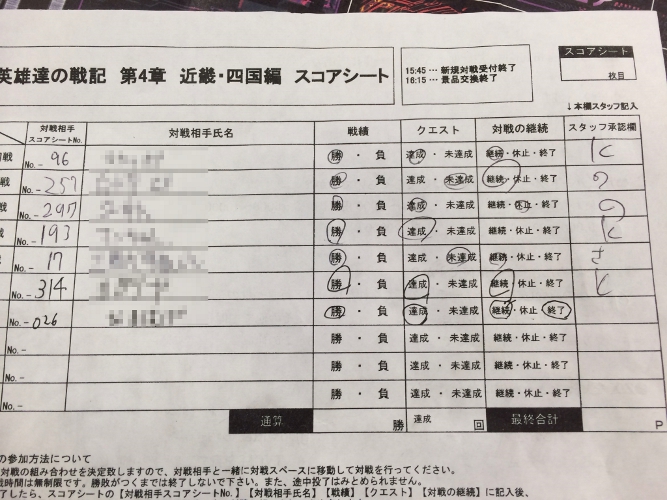 英雄達の戦記 第4章 近畿・四国編 スコアシート
15:45 … 新規対戦受付終了
16:15 … 景品交換終了
スコアシート
枚目
↓本欄スタッフ記入
対戦相手 スコアシートNo. 対戦相手氏名 戦績 クエスト 対戦の継続 スタッフ承認欄
戦 No.- 96 勝 ・ 負 達成 ・ 未達成 継続・休止・終了 K
戦 No.- 257 勝 ・ 負 達成 ・ 未達成 継続・休止・終了 の
戦 No.- 297 勝 ・ 負 達成 ・ 未達成 継続・休止・終了 の
No.- 193 勝 ・ 負 達成 ・ 未達成 継続・休止・終了 K
No.- 17 勝 ・ 負 達成 ・ 未達成 継続・休止・終了 さ
No.- 314 勝 ・ 負 達成 ・ 未達成 継続・休止・終了
No.- 026 勝 ・ 負 達成 ・ 未達成 継続・休止・終了
No.- 勝 ・ 負 達成 ・ 未達成 継続・休止・終了
No.- 勝 ・ 負 達成 ・ 未達成 継続・休止・終了
No.- 勝 ・ 負 達成 ・ 未達成 継続・休止・終了
通算 勝 達成 回 最終合計 P
の参加方法について
対戦の組み合わせを決定致しますので、対戦相手と一緒に対戦スペースに移動して対戦を行ってください。
戦時間は無制限です。勝敗がつくまでは終了しないで下さい。また、途中投了はみとめられません。
了したら、スコアシートの【対戦相手スコアシートNo.】【対戦相手氏名】【戦績】【クエスト】【対戦の継続】に記入後、